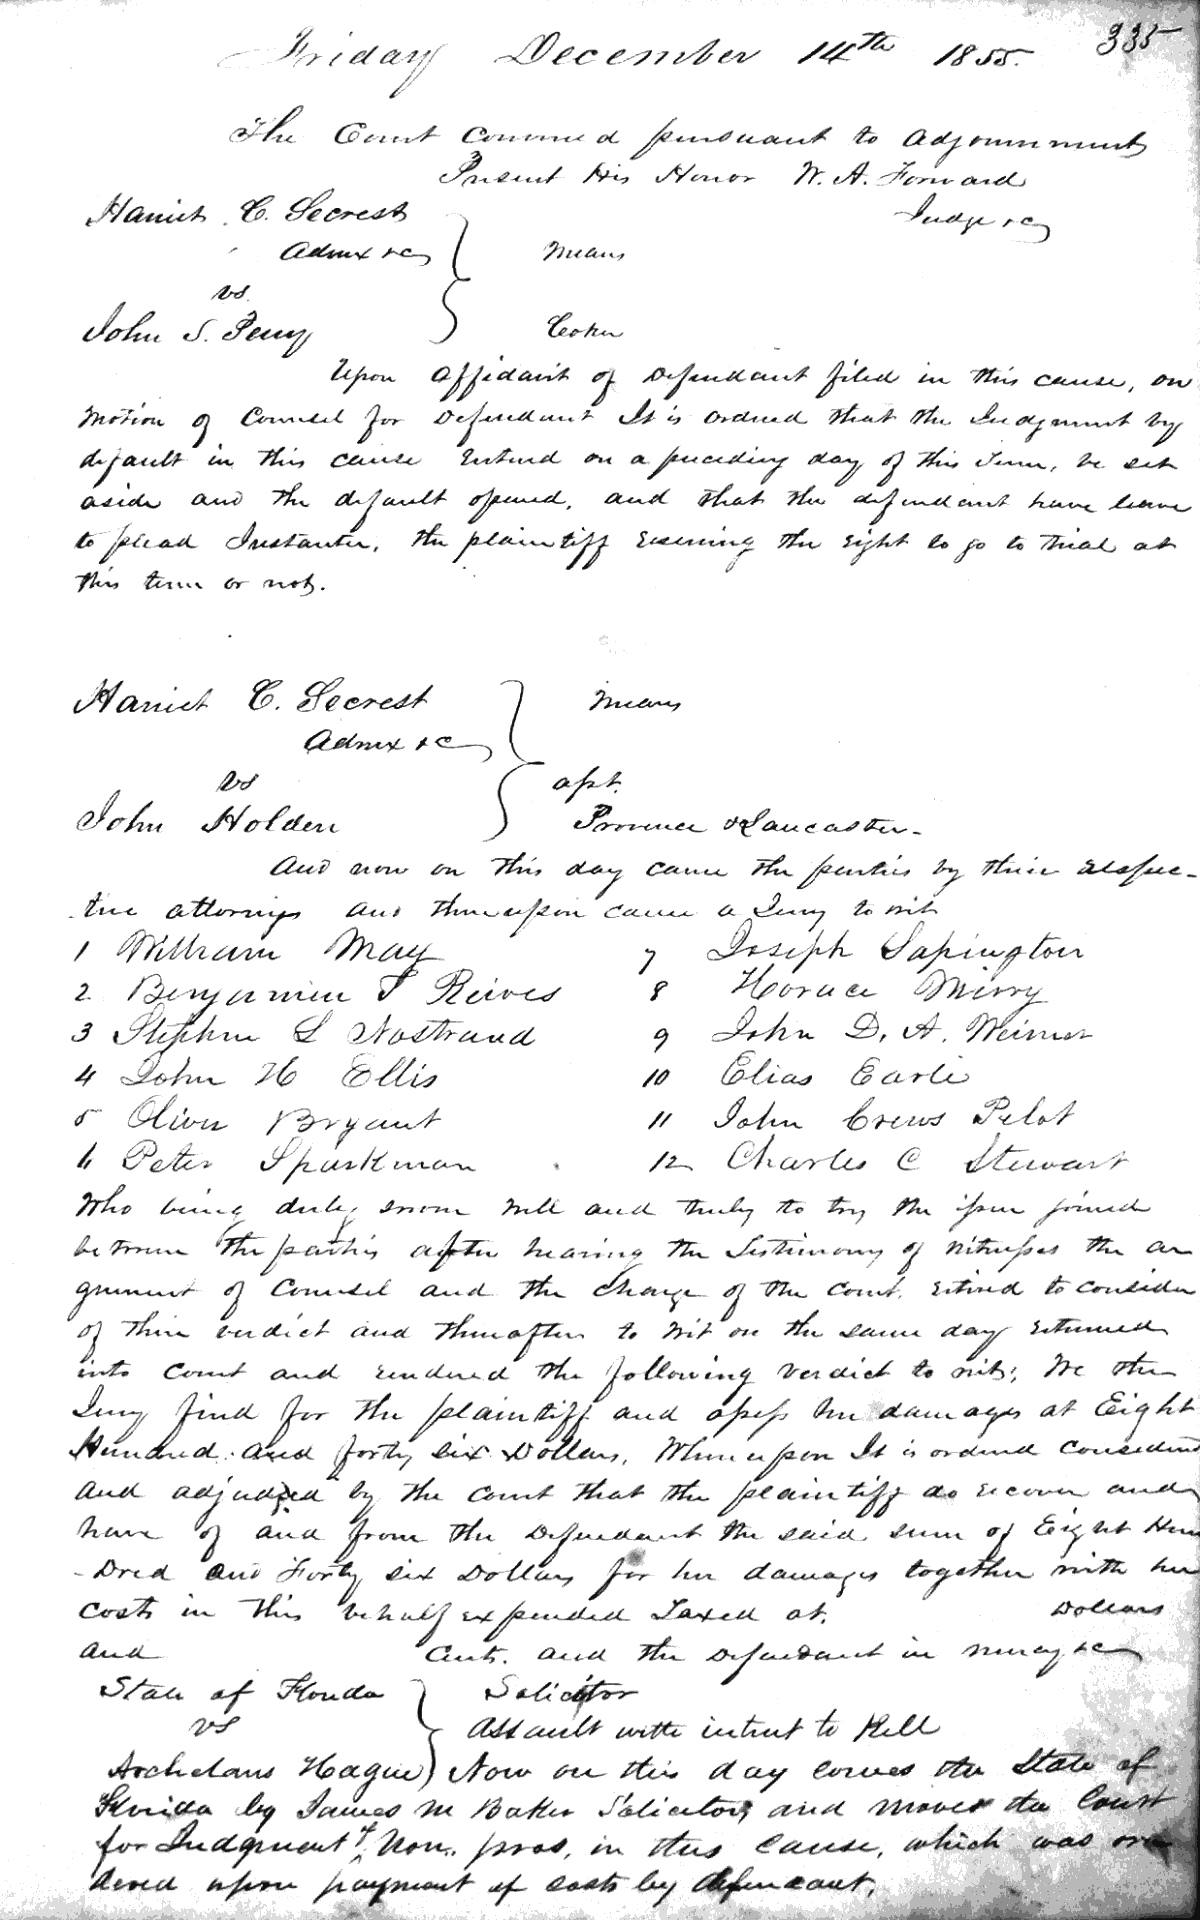 335
Friday December 14th 1855.
The Court convened pursuant to adjournment
Present His Honor W. A. Forward
Judge &c
Harriet C. Secrest
Admx &c Means
vs.
John S. Perry Coker
Upon affidavit of Defendant filed in this cause, on
motion of Counsel for Defendant It is ordered that the Judgment by
default in this cause Entered on a preceding day of this Term, be set
aside and the default opened, and that the defendant have leave
to plead Instanter, the plaintiff reserving the right to go to trial at
this term or not.
Harriet C. Secrest Means
Admx &c
vs apt.
John Holden Provence & Lancaster-
And now on this day came the parties by their respec-
tive attorneys and thereupon came a Jury to wit
1 William May 7 Joseph Sapington
2 Benjamin T Reives 8 Horace Mirry
3 Stephen L Nostrand 9 John D. A. Weimer
4 John H Ellis 10 Elias Earle
5 Oliver Bryant 11 John Crews Pelot
6 Peter Sparkman 12 Charles C Stewart
Who being duly sworn well and truly to try the issue joined
between the parties after hearing the Testimony of witnesses the ar
gument of Counsel and the charge of the court. retired to consider
of their verdict and thereafter to wit on the same day returned
into court and rendered the following verdict to wit; We the
Jury find for the plaintiff and assess her damages at Eight
Hundred and forty six Dollars. Whereupon It is ordered considered
and adjudged by the court that the plaintiff do recover and
have of and from the Defendant the said sum of Eight Hun
-Dred and Forty six Dollars for her damages together with her
costs in this behalf expended Taxed at. Dollars
and Cents. and the Defendant in mercy &c
State of Florida Solicitor
vs Assault with intent to Kill
Archelaus Hague Now on this day comes the State of
Florida by James M Baker Solicitor, and moves the Court
for Judgment of Non. pros. in this cause, which was or
dered upon payment of costs by defendant.